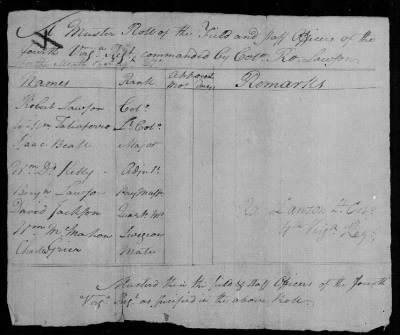 A Muster Roll of the Field and Staff Officers of the
fourth Virga Regt commanded by Colo. Ro. Lawson
for the Month
Names Rank Appoint Remarks
Robert Lawson Colo.
Taliaferro Lt. Colo.
Isaac Beall Major
Wm. D. Kelly Adjut.
Benja Lawson Pay Mastr
David Jackson Quart. Mr.
Wm. McMahon Surgeon
Charles Greer Mate
Ro. Lawson
4th Virga Regt
Musterd then the field & Staff Officers of the fourth
Virga. Regt. as specified in the above Roll